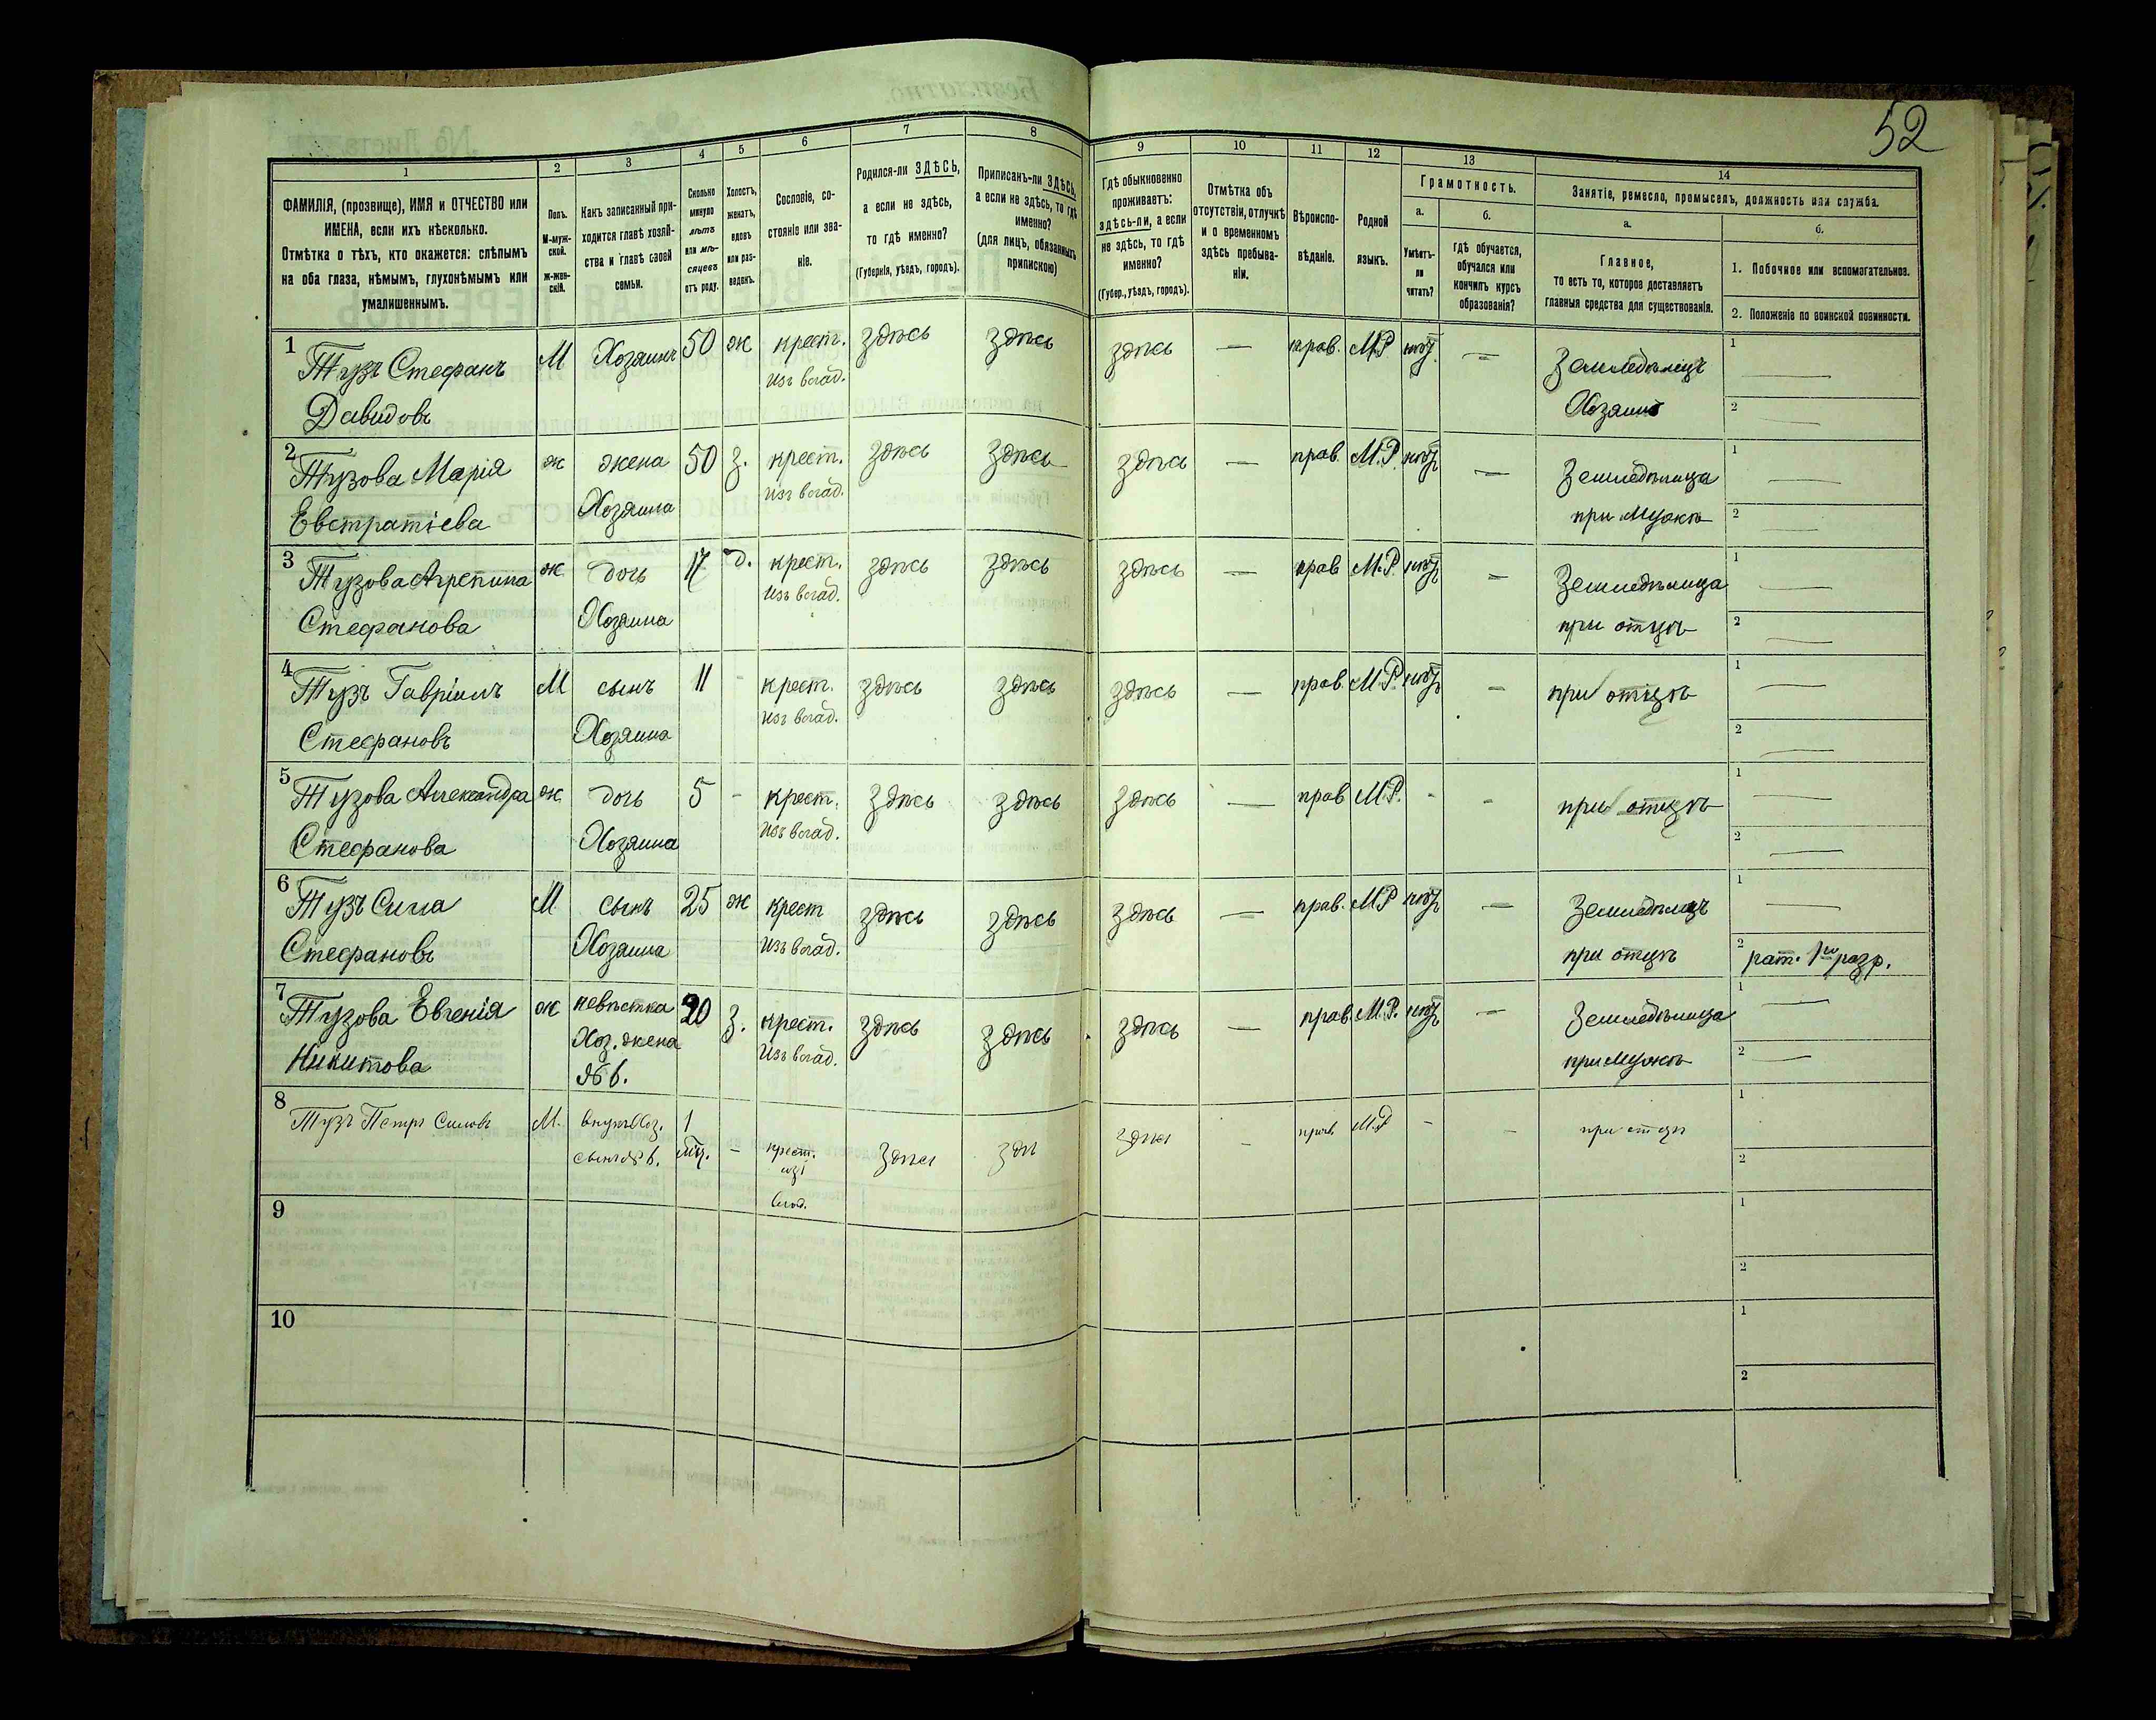 52
1
2
3
4
5
6
7
8
9
10
11
12
13
14
ФАМИЛІЯ, (прозвище), ИМЯ и ОТЧЕСТВО или
ИМЕНА, если ихъ нѣсколько.
Отмѣтка о тѣхъ, кто окажется: слѣпымъ
на оба глаза, нѣмымъ, глухонѣмымъ или
умалишеннымъ.
Полъ.
М-муж-
ской.
ж-жен-
скій.
Какъ записанный при-
ходится главѣ хозяй-
ства и главѣ своей
семьи.
Сколько
минуло
лѣтъ
или мѣ-
сяцевъ
отъ роду.
Холостъ,
женатъ,
вдовъ
или раз-
веденъ.
Сословіе, со-
стояніе или зва-
ніе.
Родился-ли ЗДѢСЬ,
а если не здѣсь,
то гдѣ именно?
(Губернія, уѣздъ, городъ).
Приписанъ-ли ЗДѢСЬ,
а если не здѣсь, то гдѣ
именно?
(для лицъ, обязанныхъ
припискою)
Гдѣ обыкновенно
проживаетъ:
здѣсь-ли, а если
не здѣсь, то гдѣ
именно?
(Губер., уѣздъ, городъ).
Отмѣтка объ
отсутствіи, отлучкѣ
и о временномъ
здѣсь пребыва-
ніи.
Вѣроиспо-
вѣданіе.
Родной
языкъ.
Грамотность.
а.
Умѣетъ-
ли
читать?
б.
Гдѣ обучается,
обучался или
кончилъ курсъ
образованія?
Занятіе, ремесло, промыселъ, должность или служба.
а.
Главное,
то есть то, которое доставляетъ
главныя средства для существованія.
б.
1. Побочное или вспомогательное.
2. Положеніе по воинской повинности.
1 Тузъ Стефанъ М Хозяинъ 50 ж крест. здѣсь здѣсь здѣсь — прав. М.Р. нѣтъ — Земледѣлецъ 1 —
Давидовъ изъ влад. Хозяинъ 2 —
2 Тузова Марія ж жена 50 з. крест. здѣсь здѣсь здѣсь — прав. М.Р. нѣтъ — Земледѣлица 1 —
Евстратіева Хозяина изъ влад. при мужѣ 2 —
3 Тузова Агрепина ж дочь 17 д. крест. здѣсь здѣсь здѣсь — прав М.Р. нѣтъ — Земледѣлица 1 —
Стефанова Хозяина изъ влад. при отцѣ 2 —
4 Тузъ Гавріилъ М сынъ 11 - крест. здѣсь здѣсь здѣсь — прав. М.Р. нѣтъ — при отцѣ 1 —
Стефановъ Хозяина изъ влад. 2 —
5 Тузова Александра ж дочь 5 - крест. здѣсь здѣсь здѣсь — прав М.Р. - - при отцѣ 1 —
Стефанова Хозяина изъ влад. 2 —
6 Тузъ Сила М сынъ 25 ж крест здѣсь здѣсь здѣсь — прав. М.Р нѣтъ — Земледѣлецъ 1 —
Стефановъ Хозяина изъ влад. при отцѣ 2 рат. 1го разр.
7 Тузова Евгенія ж невѣстка 20 з. крест. здѣсь здѣсь здѣсь — прав. М.Р. нѣтъ — Земледѣлица 1 —
Никитова Хоз. жена изъ влад. при мужѣ 2 —
№ 6.
8 Тузъ Петръ Силовъ М. внукъ Хоз. 1 прав. М.Р - - при отцѣ 1
сынъ № 6. мѣц. — крест. здѣсь здѣ здѣсь - 2
изъ
влад.
9 1
2
10 1
2